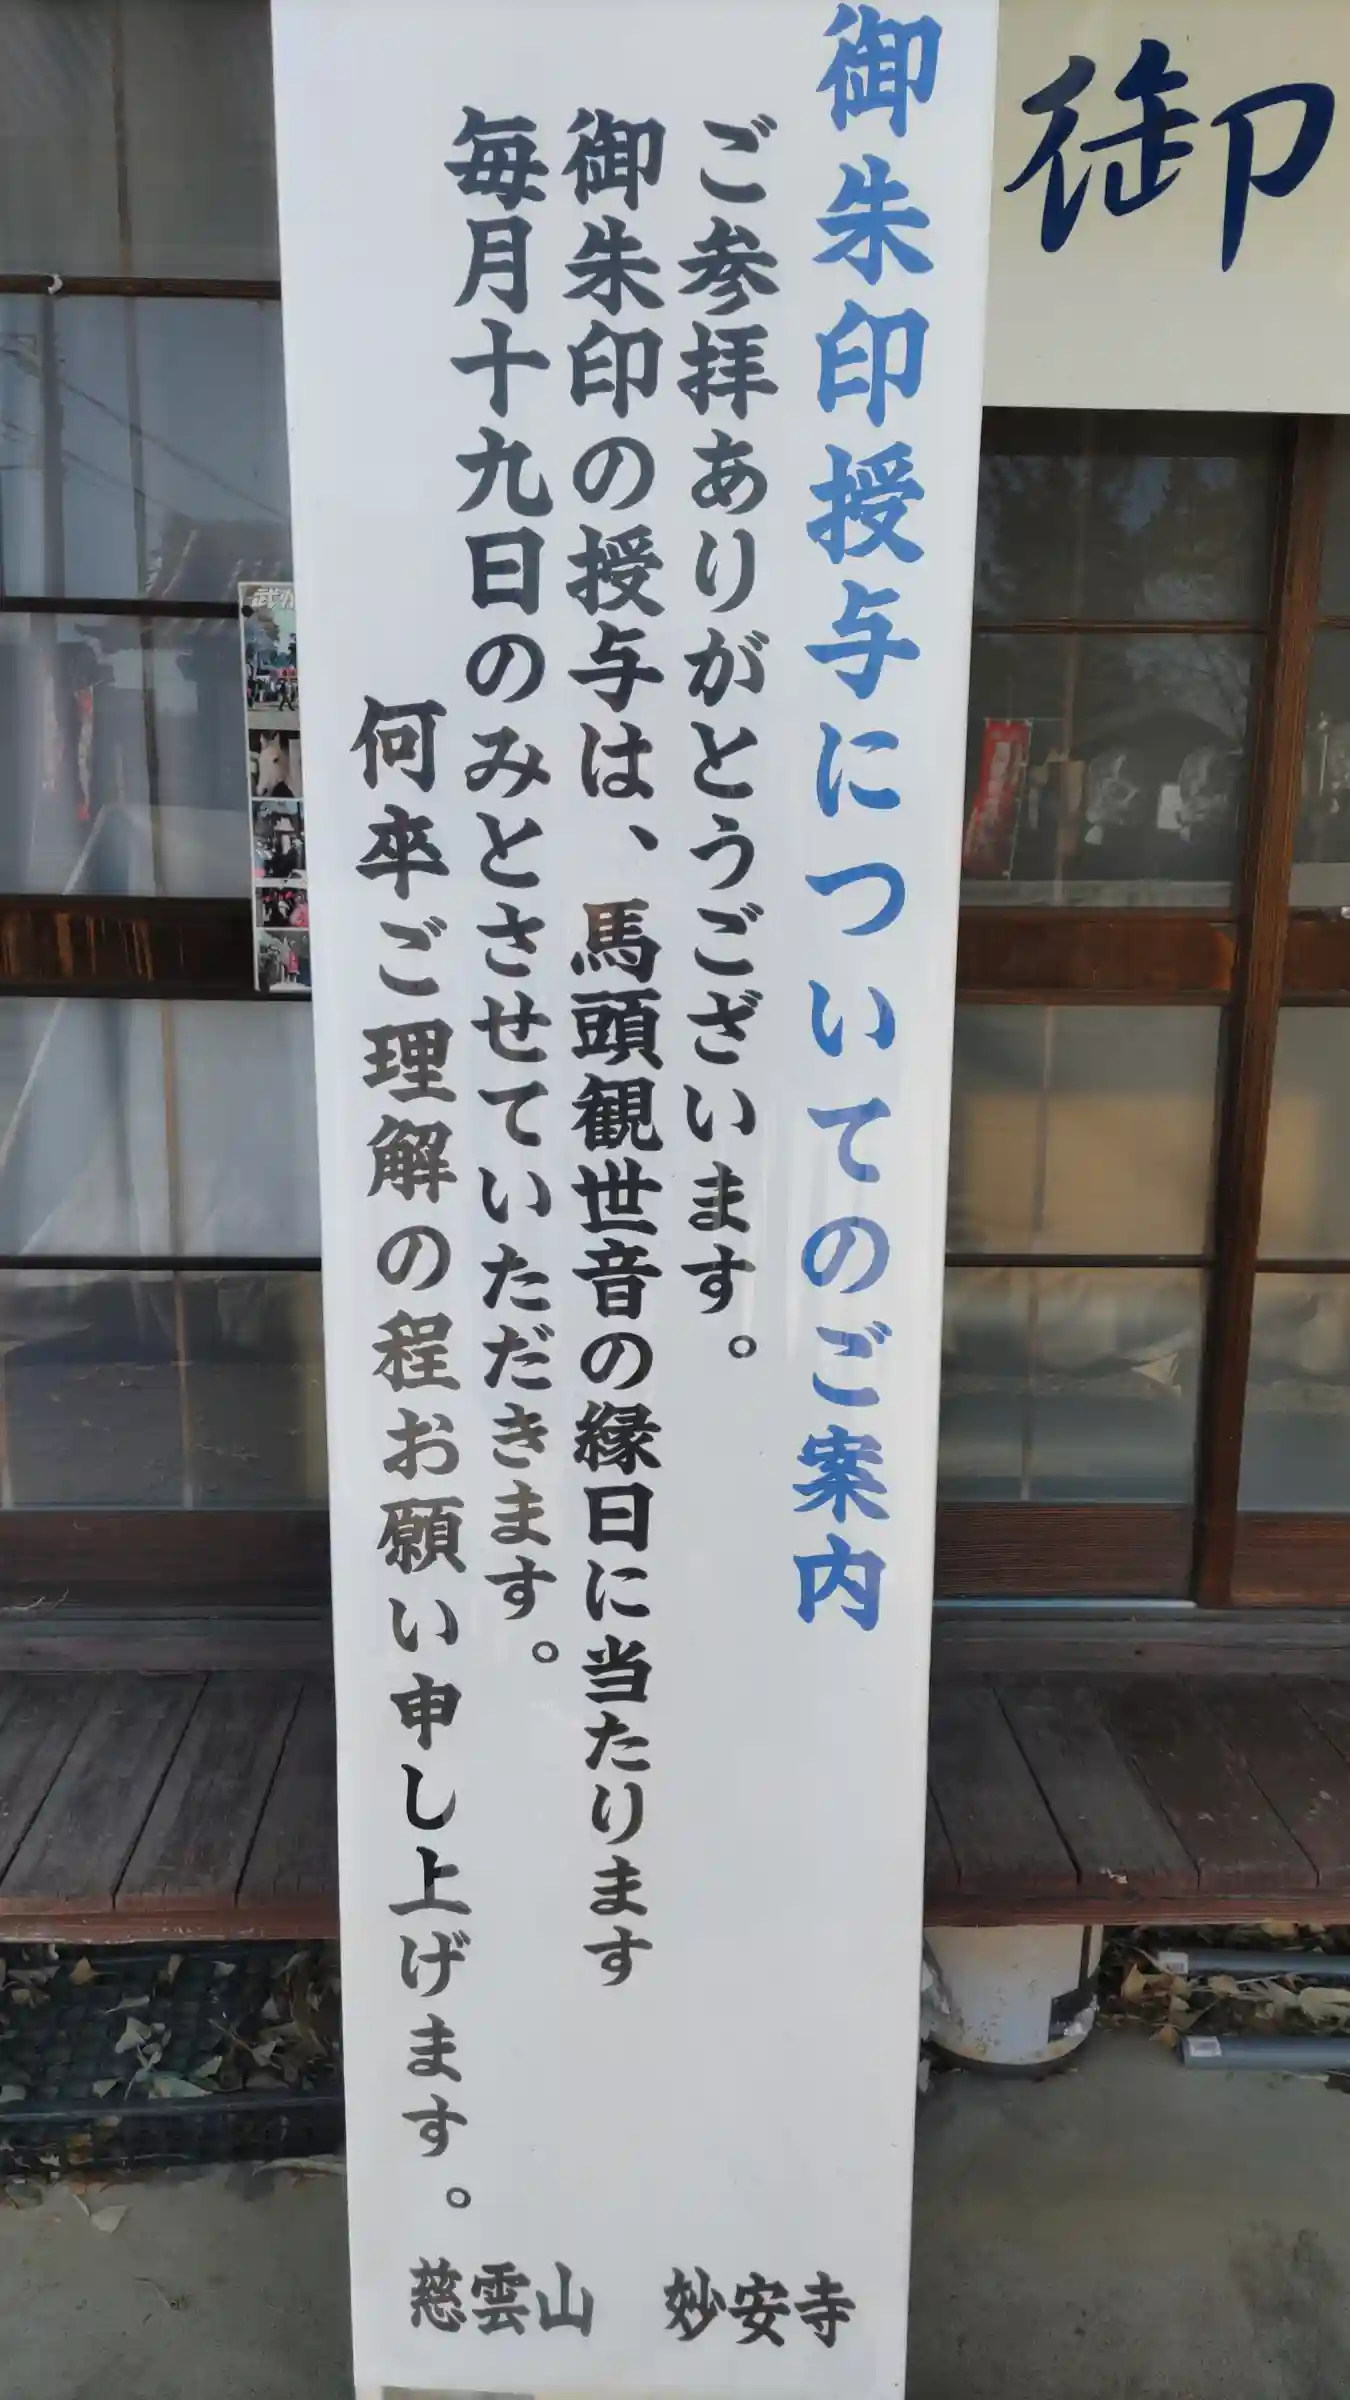 御朱印授与についてのご案内
ご参拝ありがとうございます。
御朱印の授与は、馬頭観世音の縁日に当たります
毎月十九日のみとさせていただきます。
何卒ご理解の程お願い申し上げます。
慈雲山　妙安寺
御
武州